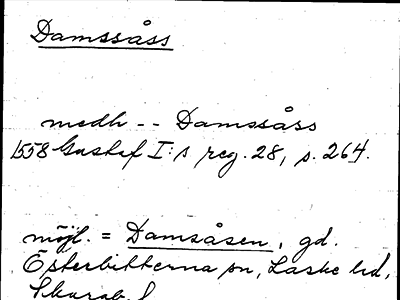 Damssåss
medh -- Damssåss
1558 Gustaf I:s reg. 28, s. 264.
möjl. = Damsåsen, gd.
Österbitterna sn, Laske hd,
Skarab. l